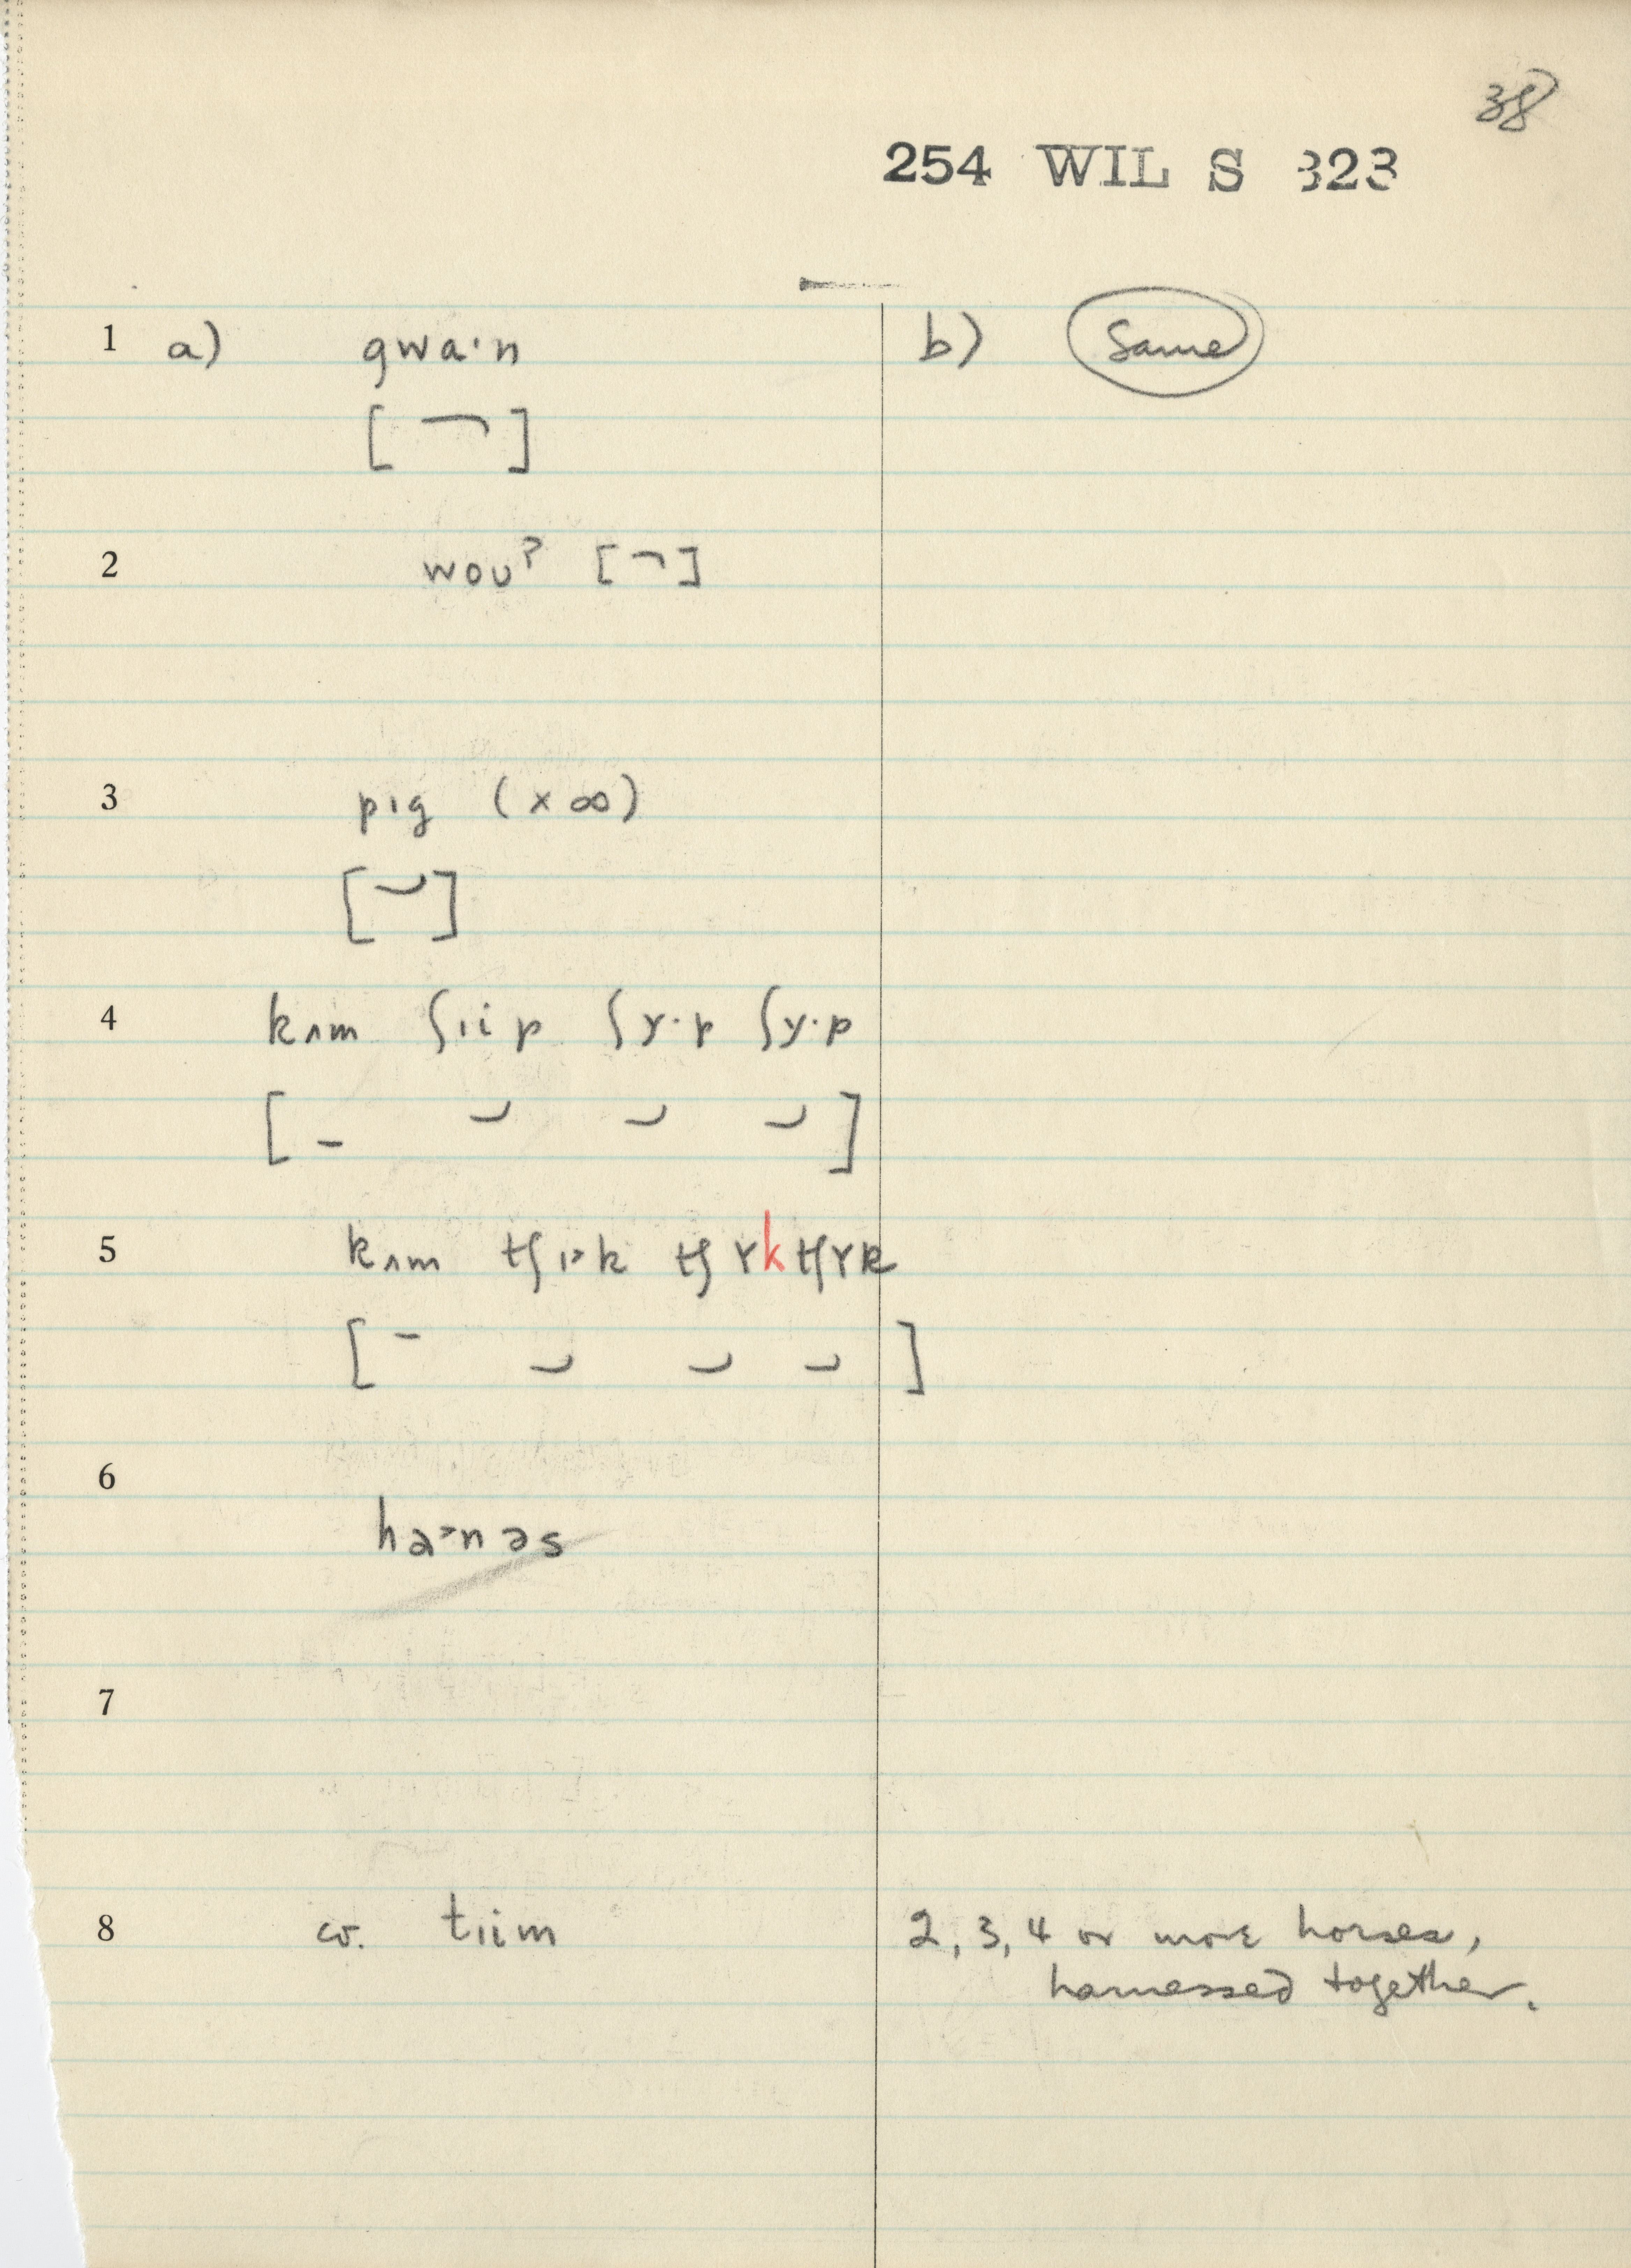 38
254 WIL S 323
1 a) gwa·n b) Same
[ ]
2 woʊˀ [ ]
3 pɪg (×∞)
[ ]
4 kʌm ʃɪip ʃɤ·p ʃɤ·p
[ ]
5 kʌm tʃɪ˃k tʃɤk tʃɤk
[ ]
6
ha˃nəs
7
8 cv. tɪim 2, 3, 4 or more horses,
harnessed together.